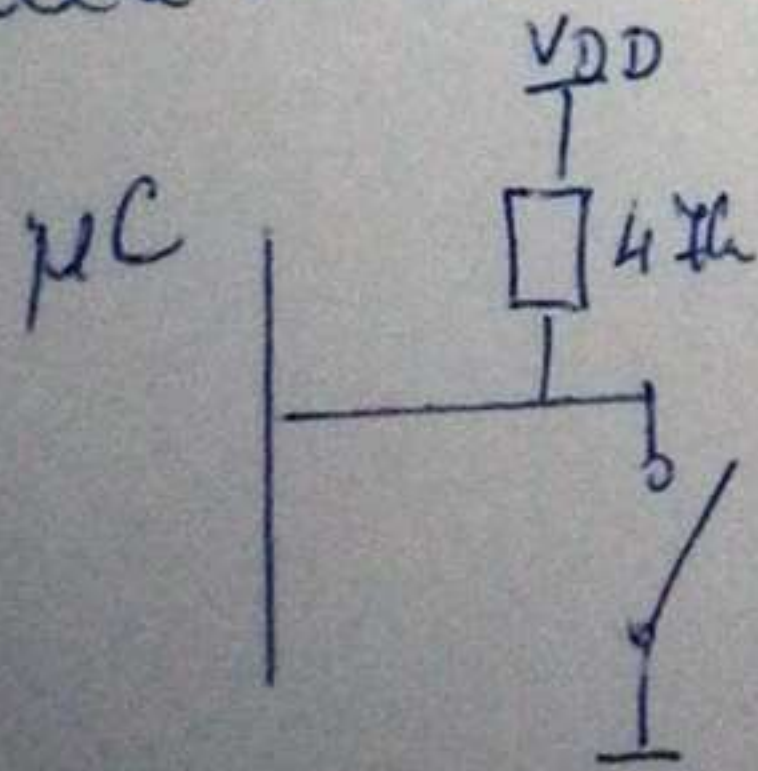 VDD
μC
47k